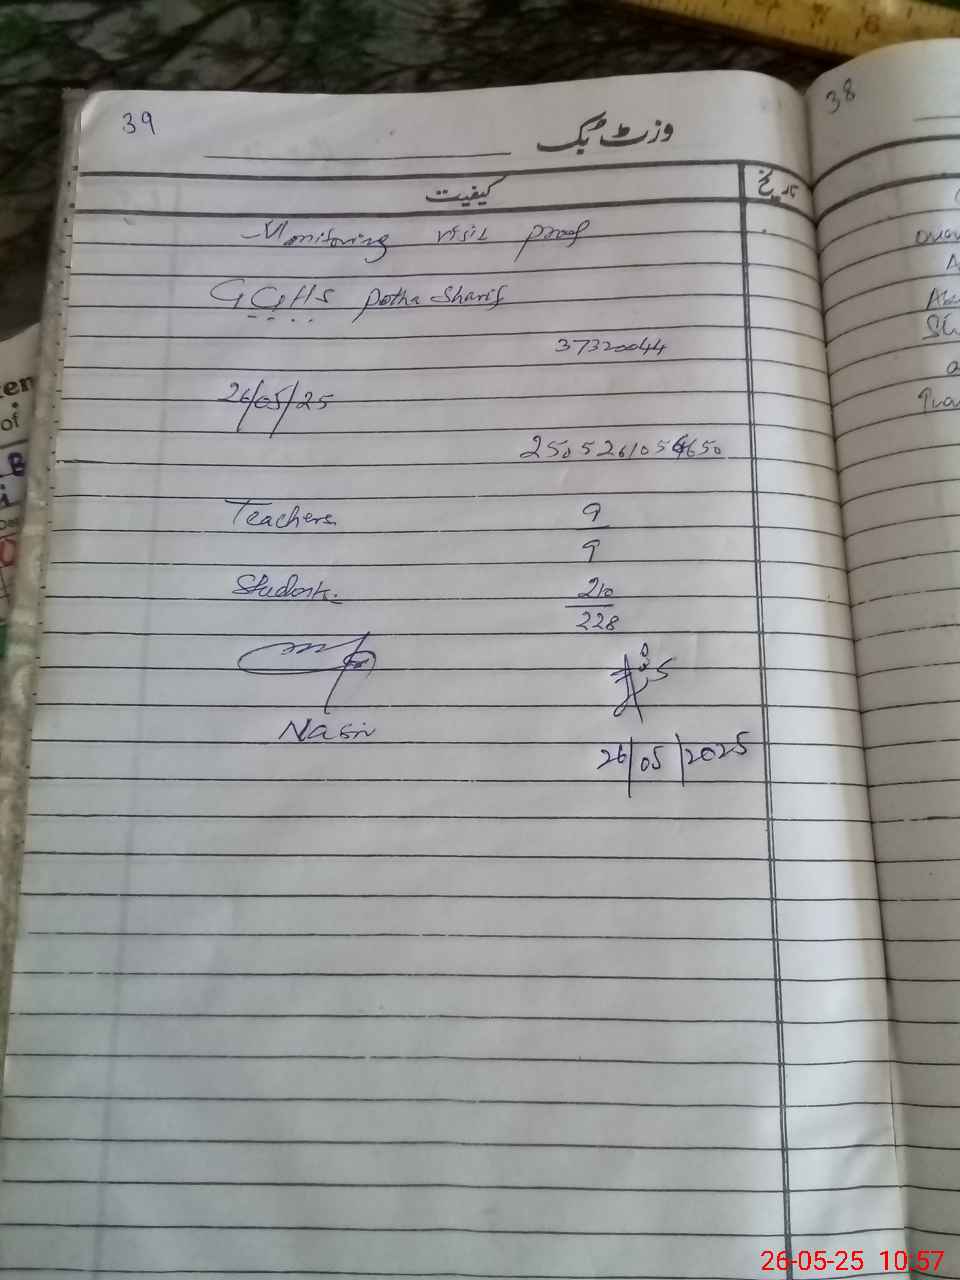 39
وزٹ بک
کیفیت
تاریخ
Monitoring visit proof
GGHS Potha Sharif
37320044
26/05/25
Teachers 9
9
Students 210
228
Nasir
26/05/2025
38
26-05-25 10:57